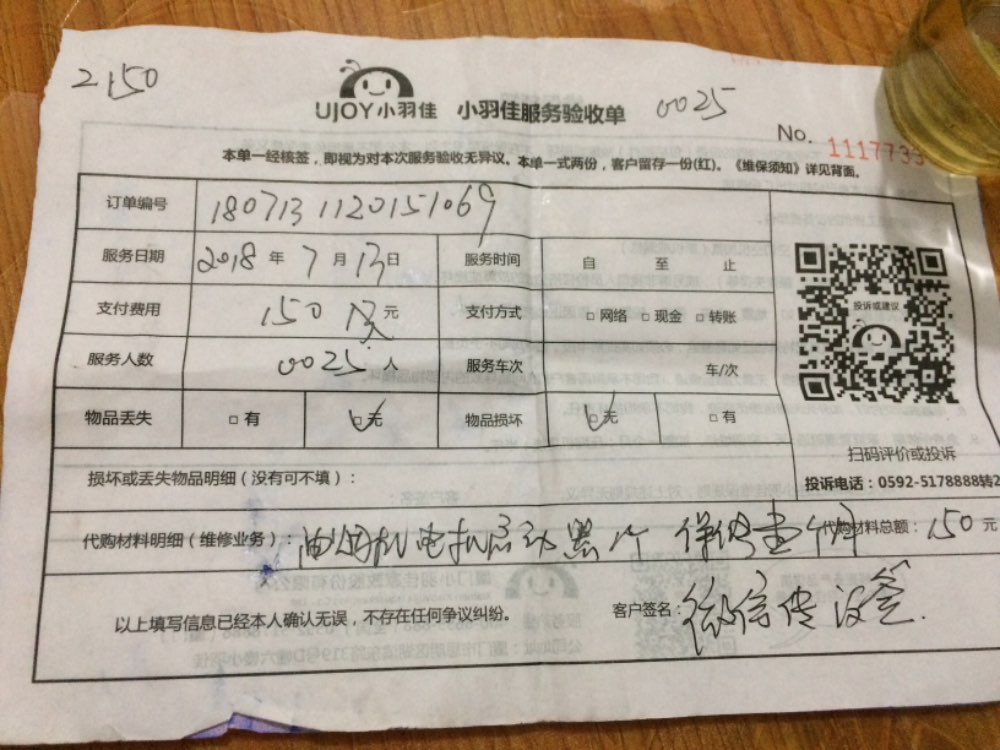 2150
UJOY小羽佳 小羽佳服务验收单 0025
No. 1117733
本单一经核签，即视为对本次服务验收无异议。本单一式两份，客户留存一份(红)。《维保须知》详见背面。
订单编号 180713 1120151069
服务日期 2018 年 7 月 13 日 服务时间 自 至 止
支付费用 150 元 支付方式 □ 网络 □ 现金 □ 转账
服务人数 0025 人 服务车次 车/次
投诉或建议
物品丢失 □ 有 □ 无 物品损坏 □ 无 □ 有
扫码评价或投诉
损坏或丢失物品明细（没有可不填）：
投诉电话：0592-5178888转2
代购材料明细（维修业务）：油烟机电机启动 代购材料总额：150 元
以上填写信息已经本人确认无误，不存在任何争议纠纷。 客户签名：微信传没签.